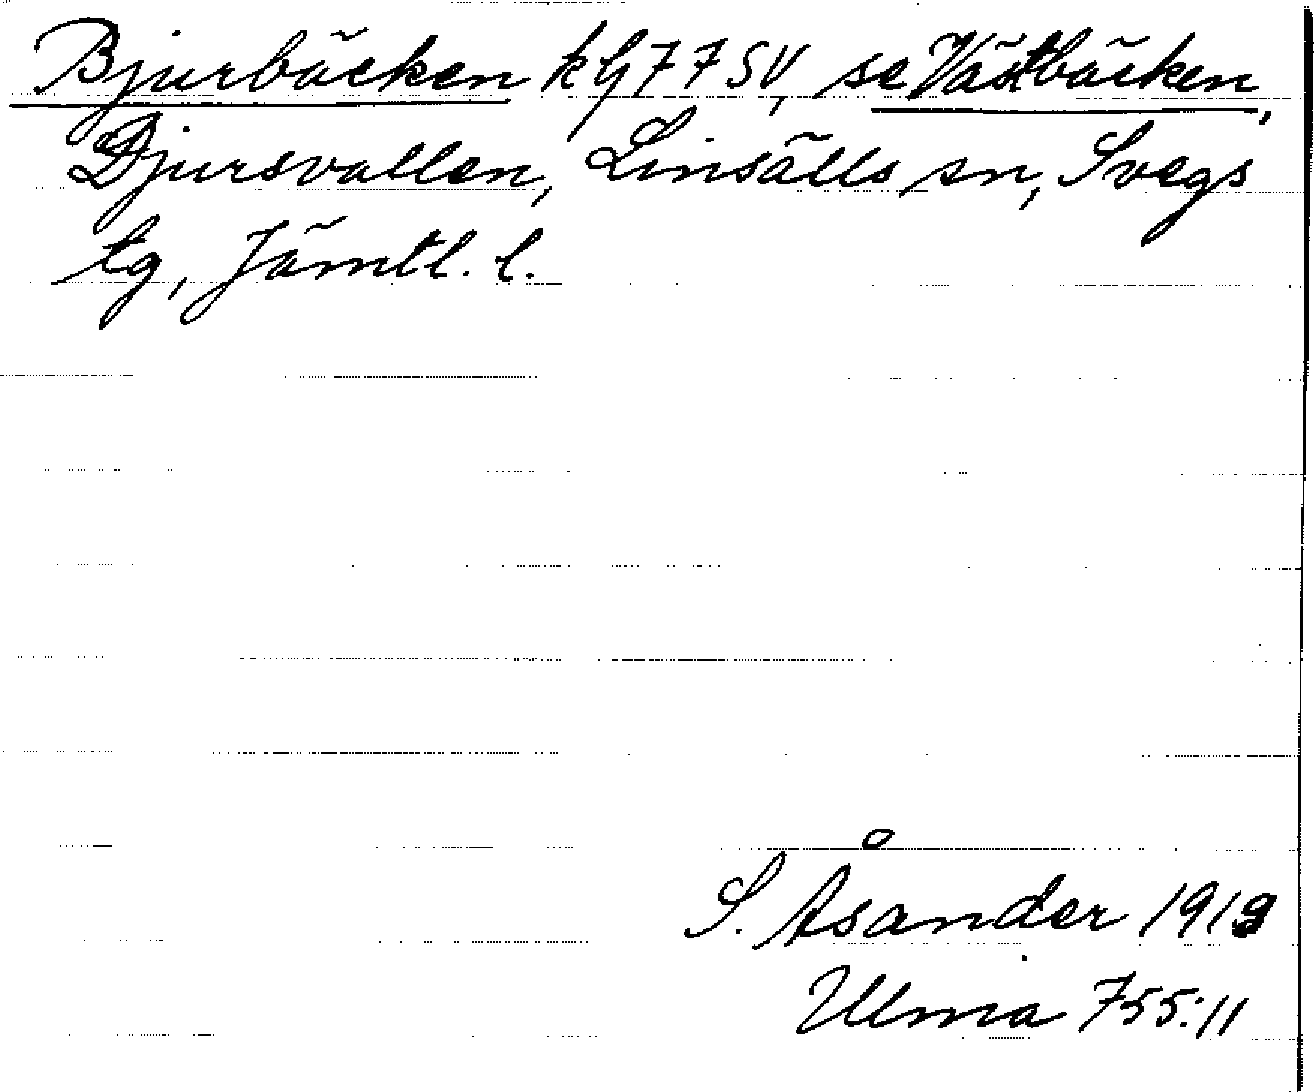 Bjurbäcken kg 77 SV, se Västbäcken,
Djursvallen, Linsälls sn, Svegs
tg, Jämtl. l.
S. Åsander 1919
Ulma 755:11